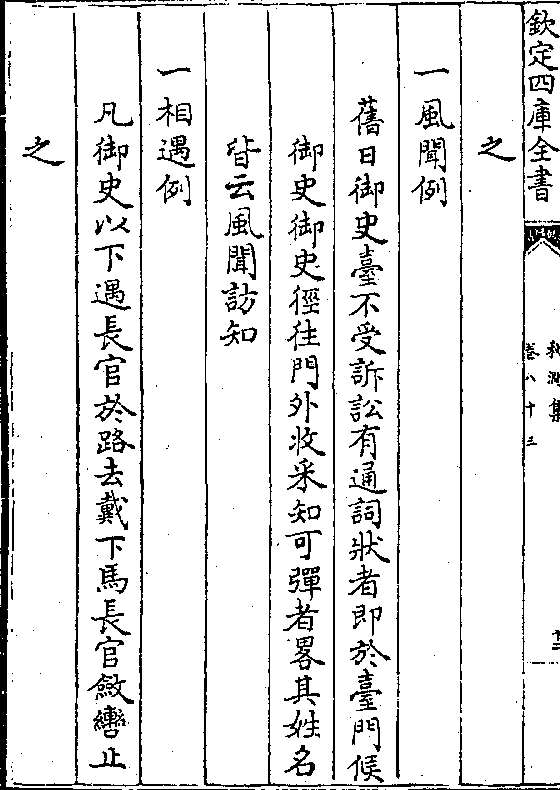 欽定四庫全書
卷八十三
之
一風聞例
舊日御史臺不受訴訟有通詞狀者即於臺門候
御史御史徑往門外收采知可彈者畧其姓名
皆云風聞訪知
一相遇例
凡御史以下遇長官於路去戴下馬長官斂轡止
之